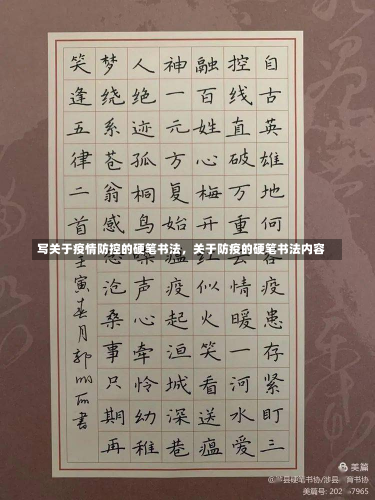 自古英雄地何容疫患存紧盯三
控线直破万重云情暖一河水爱
融百姓心梅开红似火笑看送瘟
神一元方复始瘟疫起洹城深巷
人绝迹孤桐鸟噪声心牵怜幼稚
梦绕系苍翁感沧桑事只期再
笑逢五律二首壬寅春月郭书
写关于疫情防控的硬笔书法，关于防疫的硬笔书法内容
美篇
@涉县硬笔书协/涉县育书协
美篇号: 202 7965